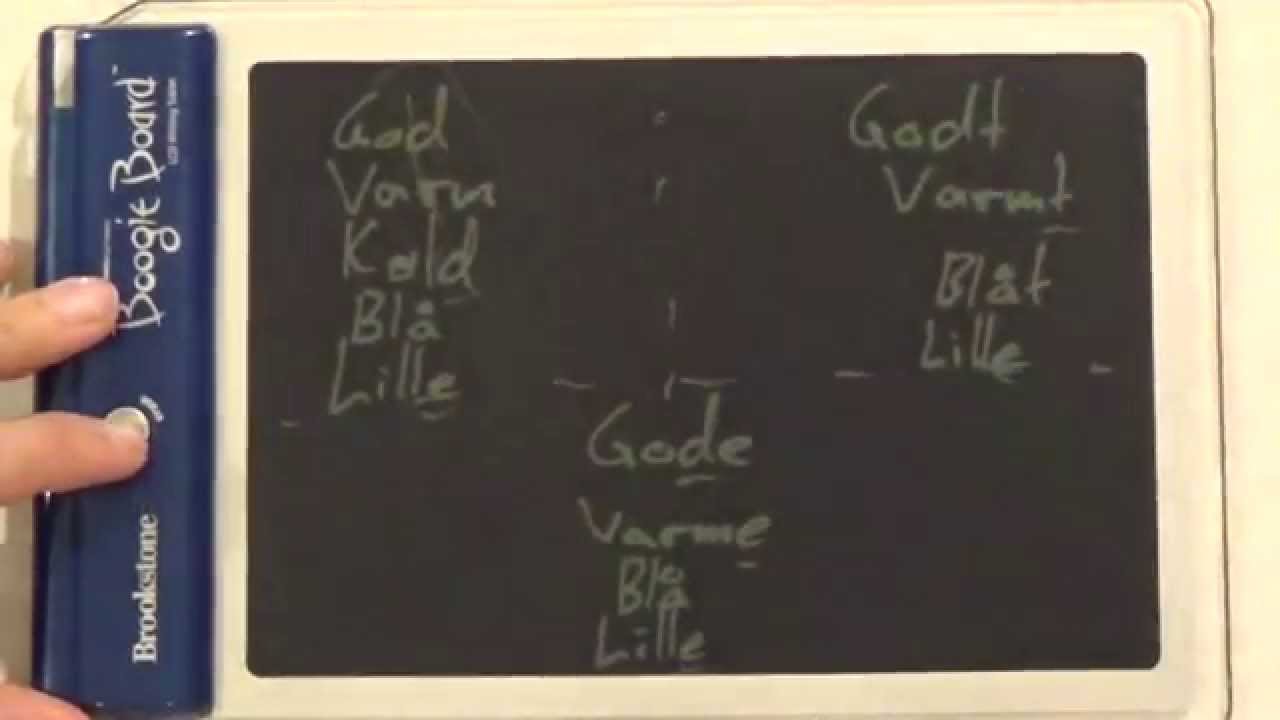 Boogie Board™
LCD Writing Tablet
Brookstone
God
Varm
Kold
Blå
Lille
Godt
Varmt
Blåt
Lille
Gode
Varme
Blå
Lille